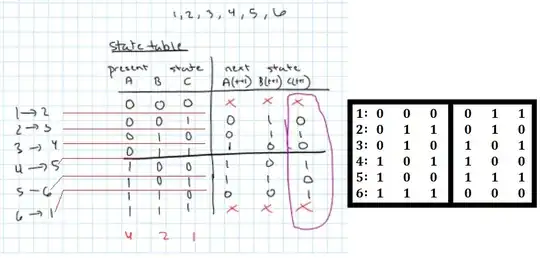 1, 2, 3, 4, 5, 6
state table
present state next state
A B C A(t+1) B(t+1) C(t+1)
0 0 0 x x x
1→2 0 0 1 0 1 0
2→3 0 1 0 0 1 1
3→4 0 1 1 1 0 0
4→5 1 0 0 1 0 1
5-6 1 0 1 1 1 0
6→1 1 1 0 0 0 1
1 1 1 x x x
4 2 1
1: 0 0 0 0 1 1
2: 0 1 1 0 1 0
3: 0 1 0 1 0 1
4: 1 0 1 1 0 0
5: 1 0 0 1 1 1
6: 1 1 1 0 0 0